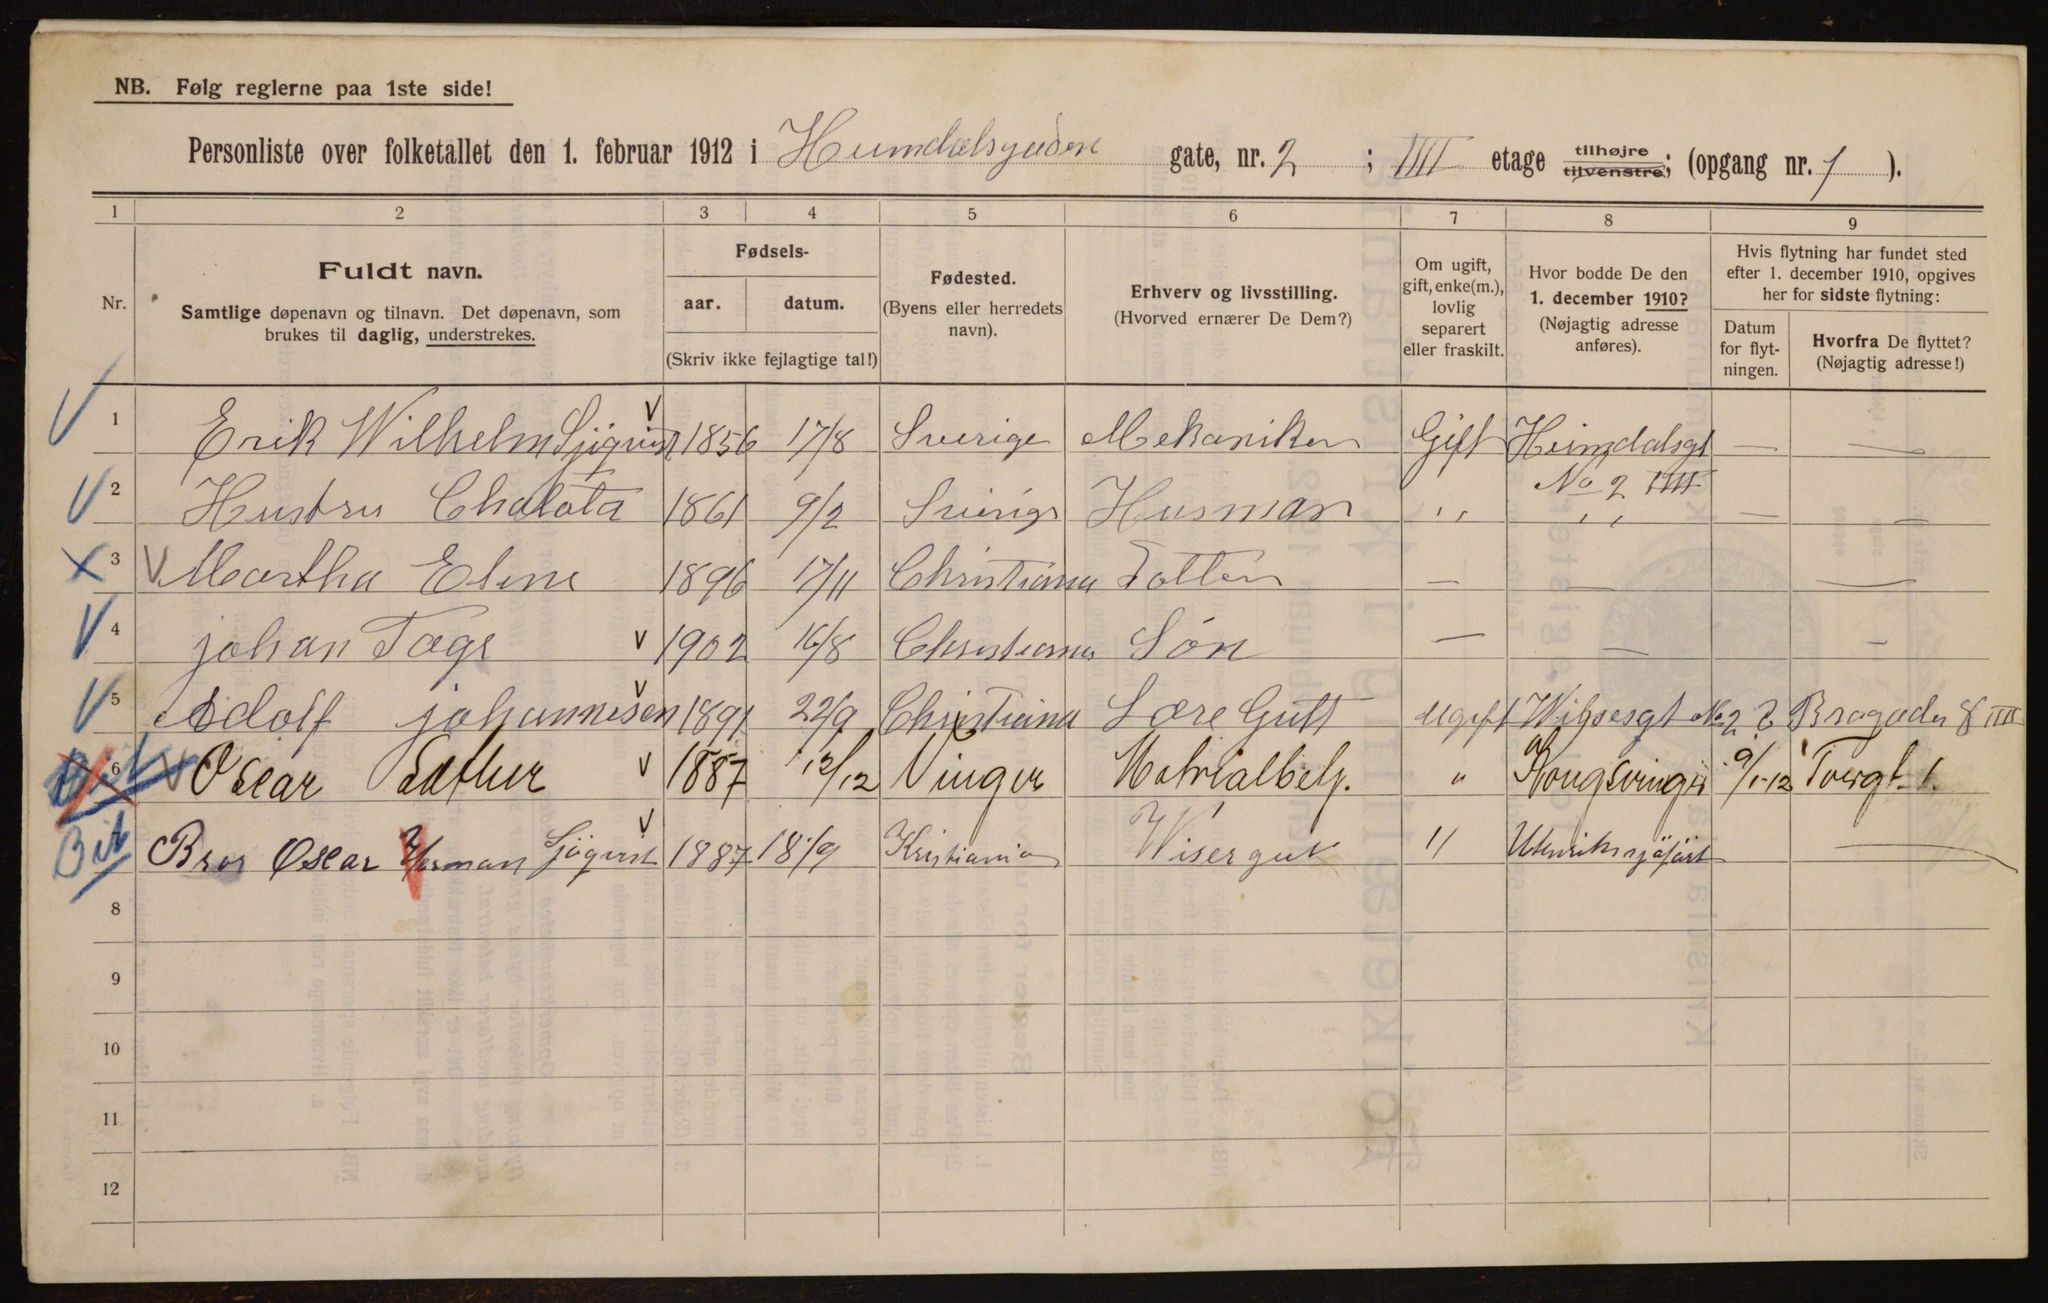 NB. Følg reglerne paa 1ste side!
Personliste over folketallet den 1. februar 1912 i Heimdalsgaden gate, nr. 2 ; IIII etage tilhøjre tilvenstre; (opgang nr. 1 ).
1 2 3 4 5 6 7 8 9
Nr.
Fuldt navn.
Samtlige døpenavn og tilnavn. Det døpenavn, som
brukes til daglig, understrekes.
Fødsels-
aar. datum.
(Skriv ikke fejlagtige tal!)
Fødested.
(Byens eller herredets
navn).
Erhverv og livsstilling.
(Hvorved ernærer De Dem?)
Om ugift,
gift, enke(m.),
lovlig
separert
eller fraskilt.
Hvor bodde De den
1. december 1910?
(Nøjagtig adresse
anføres).
Hvis flytning har fundet sted
efter 1. december 1910, opgives
her for sidste flytning:
Datum
for flyt-
ningen.
Hvorfra De flyttet?
(Nøjagtig adresse!)
1 Erik Wilhelm Sjöqvist 1856 17/8 Sverige Mekaniker Gift Heimdalsgt — —
No 2 IIII
2 Hustru Chalota 1861 9/2 Sverige Husman " " — —
3 Martha Eline 1896 17/11 Christiania Datter — — —
4 johan Tage 1902 16/8 Christiania Sön — — —
5 Adolf johannesen 1891 22/9 Christiania Lære Gutt Ugift No 2 Bragade 8 IIII
Bit 6 Oscar Sæther 1887 12/12 Vinger Matrialbetj. " Kongsvinger 9/1-12 Torvgt. 1.
Bit Bror Oscar Herman Sjöqvist 1887 18/9 Kristiania Visergut " Utenriks sjöfart —
8
9
10
11
12